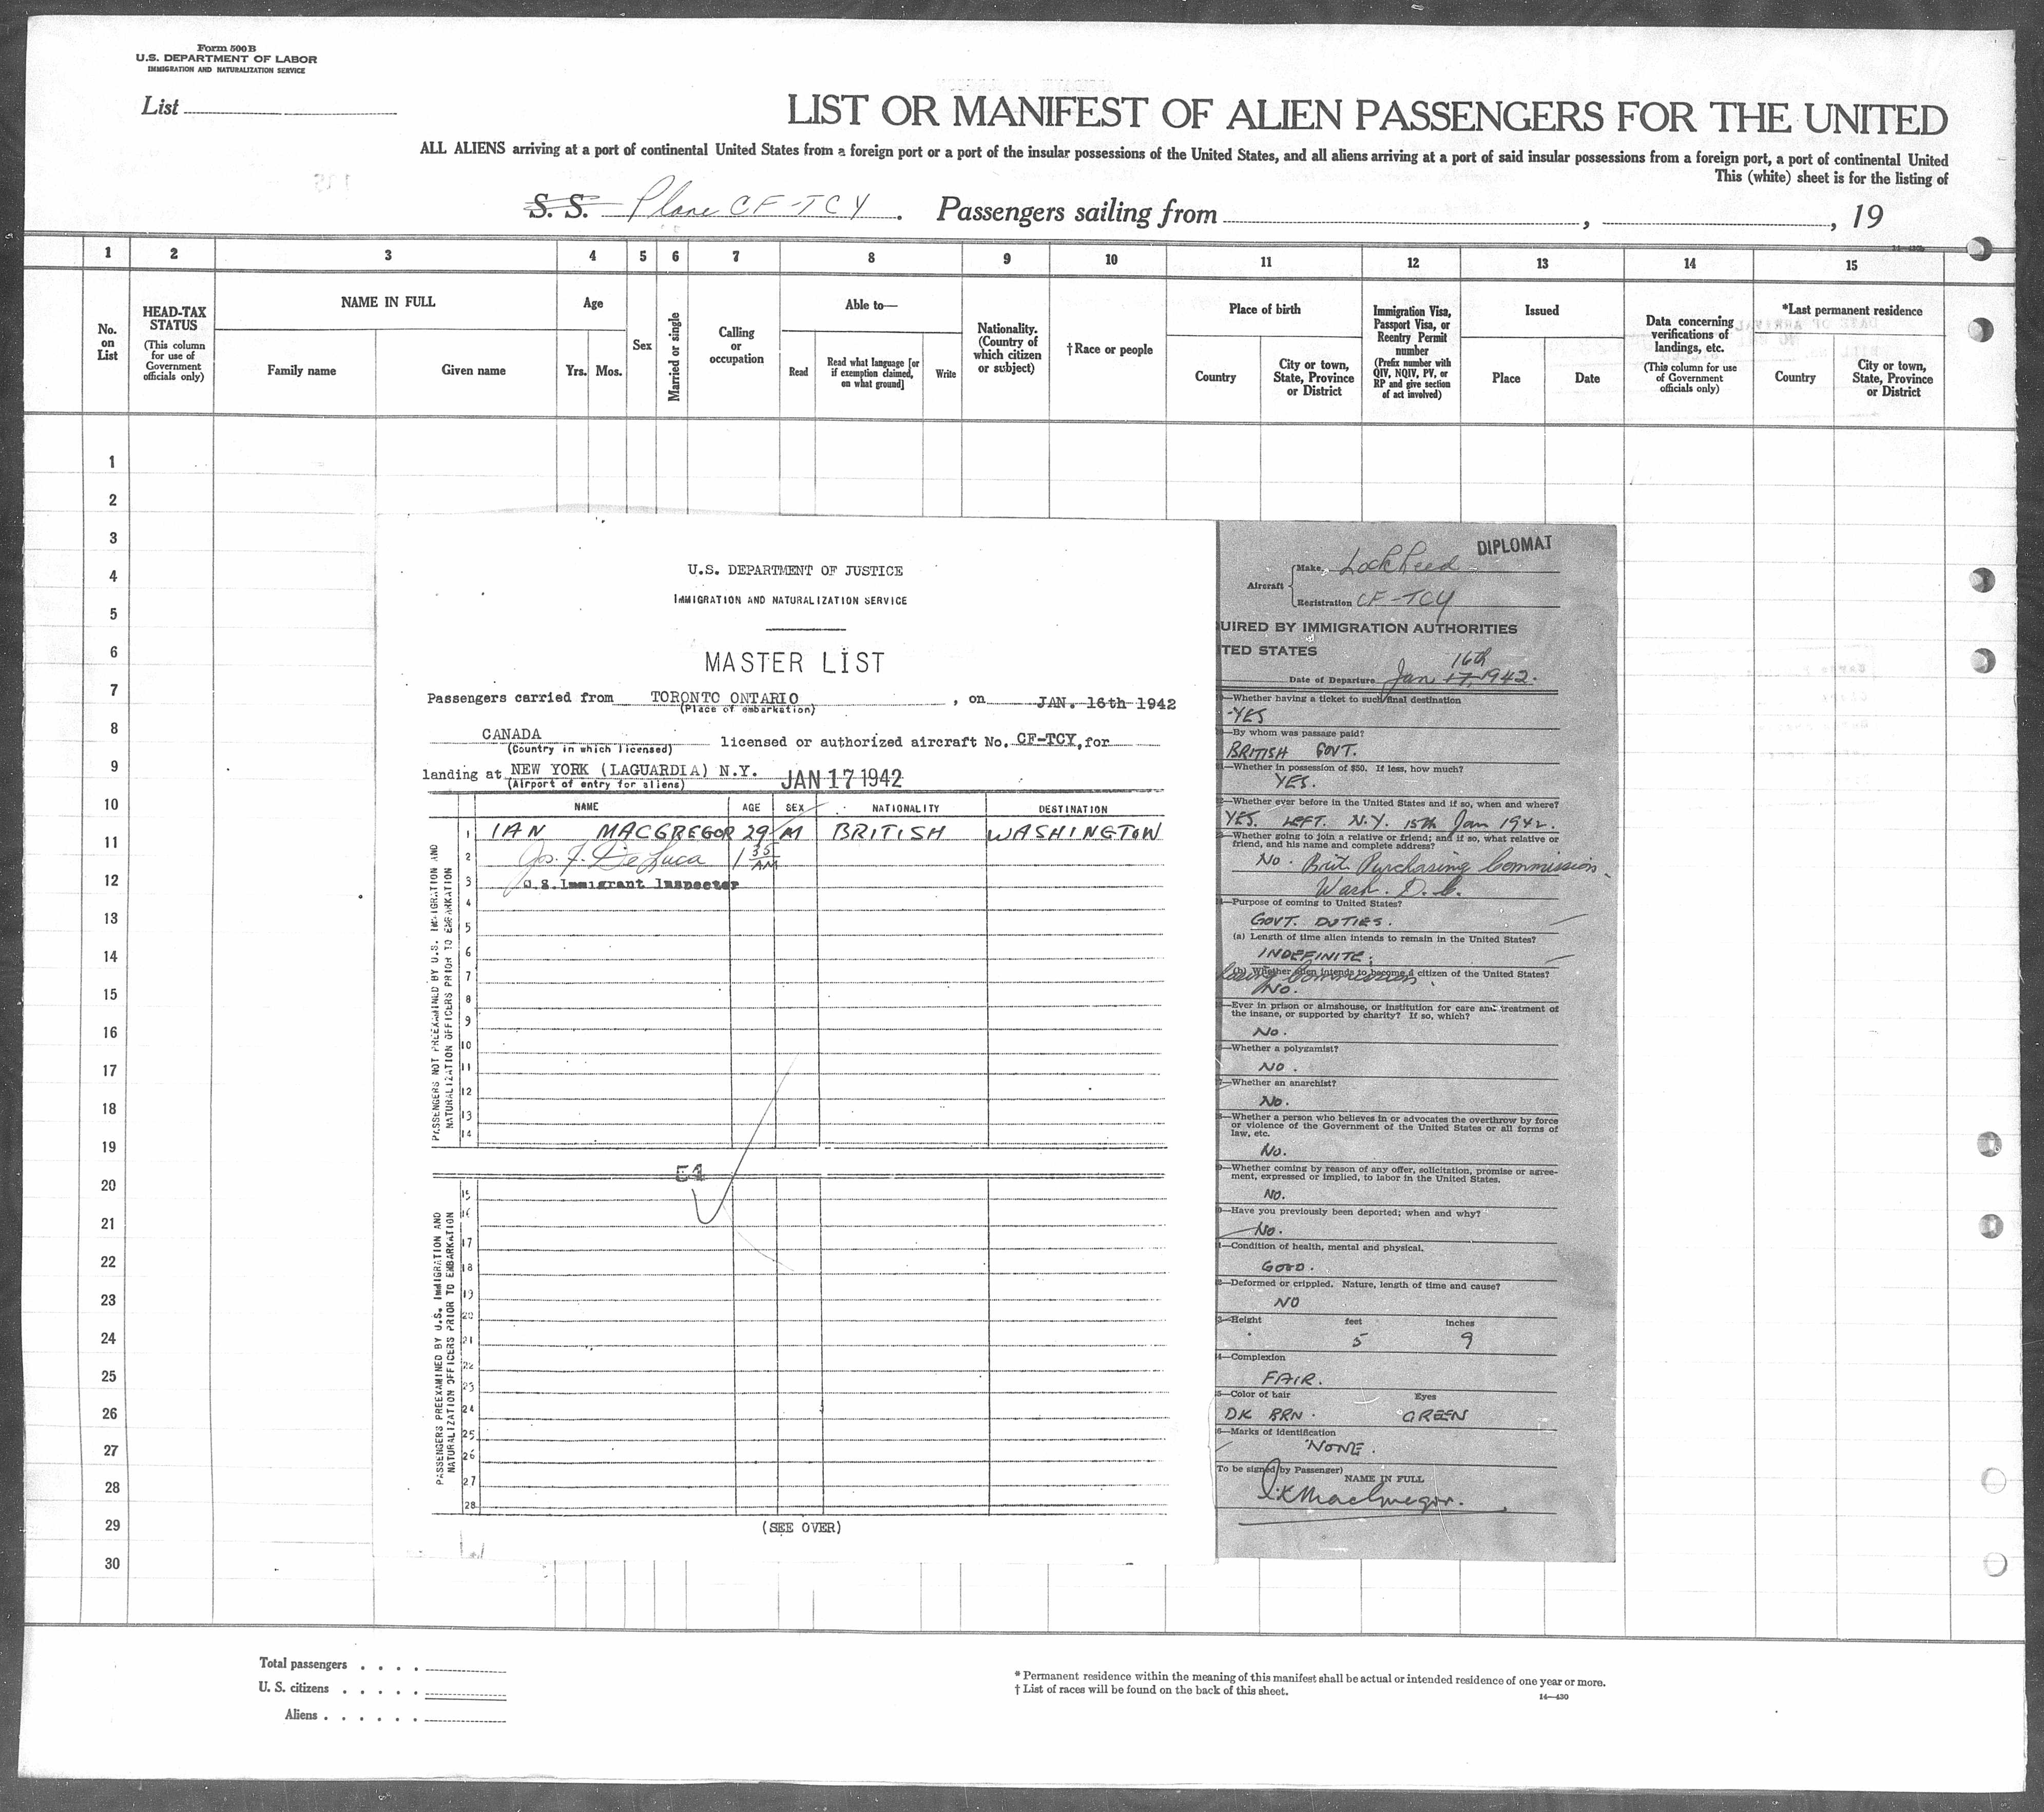 Form 500B
U.S. DEPARTMENT OF LABOR
IMMIGRATION AND NATURALIZATION SERVICE
List
LIST OR MANIFEST OF ALIEN PASSENGERS FOR THE UNITED
ALL ALIENS arriving at a port of continental United States from a foreign port or a port of the insular possessions of the United States, and all aliens arriving at a port of said insular possessions from a foreign port, a port of continental United
This (white) sheet is for the listing of
S. S. Plane CF-TCY . Passengers sailing from , , 19
1 2 3 4 5 6 7 8 9 10 11 12 13 14 15
No. on List
HEAD-TAX STATUS
(This column for use of Government officials only)
NAME IN FULL
Family name Given name
Age
Yrs. Mos.
Sex
Married or single
Calling or occupation
Able to—
Read
Read what language [or if exemption claimed, on what ground]
Write
Nationality. (Country of which citizen or subject)
†Race or people
Place of birth
Country
City or town, State, Province or District
Immigration Visa, Passport Visa, or Reentry Permit number
(Prefix number with QIV, NQIV, PV, or RP and give section of act involved)
Issued
Place Date
Data concerning verifications of landings, etc.
(This column for use of Government officials only)
*Last permanent residence
Country
City or town, State, Province or District
1
2
3
4
5
6
7
8
9
10
11
12
13
14
15
16
17
18
19
20
21
22
23
24
25
26
27
28
29
30
U.S. DEPARTMENT OF JUSTICE
IMMIGRATION AND NATURALIZATION SERVICE
MASTER LIST
Passengers carried from TORONTO ONTARIO , on JAN. 16th 1942
(Place of embarkation)
CANADA licensed or authorized aircraft No. CF-TCY, for
(Country in which licensed)
landing at NEW YORK (LAGUARDIA) N.Y. JAN 17 1942
(Airport of entry for aliens)
NAME AGE SEX NATIONALITY DESTINATION
PASSENGERS NOT PREEXAMINED BY U.S. IMMIGRATION AND
NATURALIZATION OFFICERS PRIOR TO EMBARKATION
1 IAN MACGREGOR 29 M BRITISH WASHINGTON
2 Jos. F. DeLuca 1 35 AM
3 U.S. Immigrant Inspector
4
5
6
7
8
9
10
11
12
13
14
54
PASSENGERS PREEXAMINED BY U.S. IMMIGRATION AND
NATURALIZATION OFFICERS PRIOR TO EMBARKATION
15
16
17
18
19
20
21
22
23
24
25
26
27
28
(SEE OVER)
DIPLOMAT
Aircraft
Make Lockheed
Registration CF-TCY
UIRED BY IMMIGRATION AUTHORITIES
TED STATES
16th
Date of Departure Jan 17, 1942.
—Whether having a ticket to such final destination
YES
—By whom was passage paid?
BRITISH GOVT.
—Whether in possession of $50. If less, how much?
YES.
—Whether ever before in the United States and if so, when and where?
YES. LEFT. N.Y. 15th Jan 1942.
—Whether going to join a relative or friend; and if so, what relative or
friend, and his name and complete address?
No. Brit Purchasing Commission
Wash. D.C.
—Purpose of coming to United States?
GOVT. DUTIES.
(a) Length of time alien intends to remain in the United States?
INDEFINITE.
(b) Whether alien intends to become a citizen of the United States?
Commission
No.
—Ever in prison or almshouse, or institution for care and treatment of
the insane, or supported by charity? If so, which?
No.
—Whether a polygamist?
No.
—Whether an anarchist?
No.
—Whether a person who believes in or advocates the overthrow by force
or violence of the Government of the United States or all forms of
law, etc.
No.
—Whether coming by reason of any offer, solicitation, promise or agree-
ment, expressed or implied, to labor in the United States.
No.
—Have you previously been deported; when and why?
No.
—Condition of health, mental and physical.
GOOD.
—Deformed or crippled. Nature, length of time and cause?
NO
—Height feet inches
5 9
—Complexion
FAIR.
—Color of hair Eyes
DK BRN. GREEN
—Marks of identification
NONE.
To be signed by Passenger)
NAME IN FULL
I.K MacGregor.
Total passengers . . . .
U. S. citizens . . . . .
Aliens . . . . . .
* Permanent residence within the meaning of this manifest shall be actual or intended residence of one year or more.
† List of races will be found on the back of this sheet.
14—430